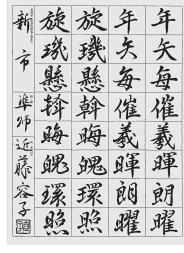 年矢毎催羲暉朗曜
年矢毎催羲暉朗曜
旋璣懸斡晦魄環照
旋璣懸斡晦魄環照
新市 準師 近藤容子